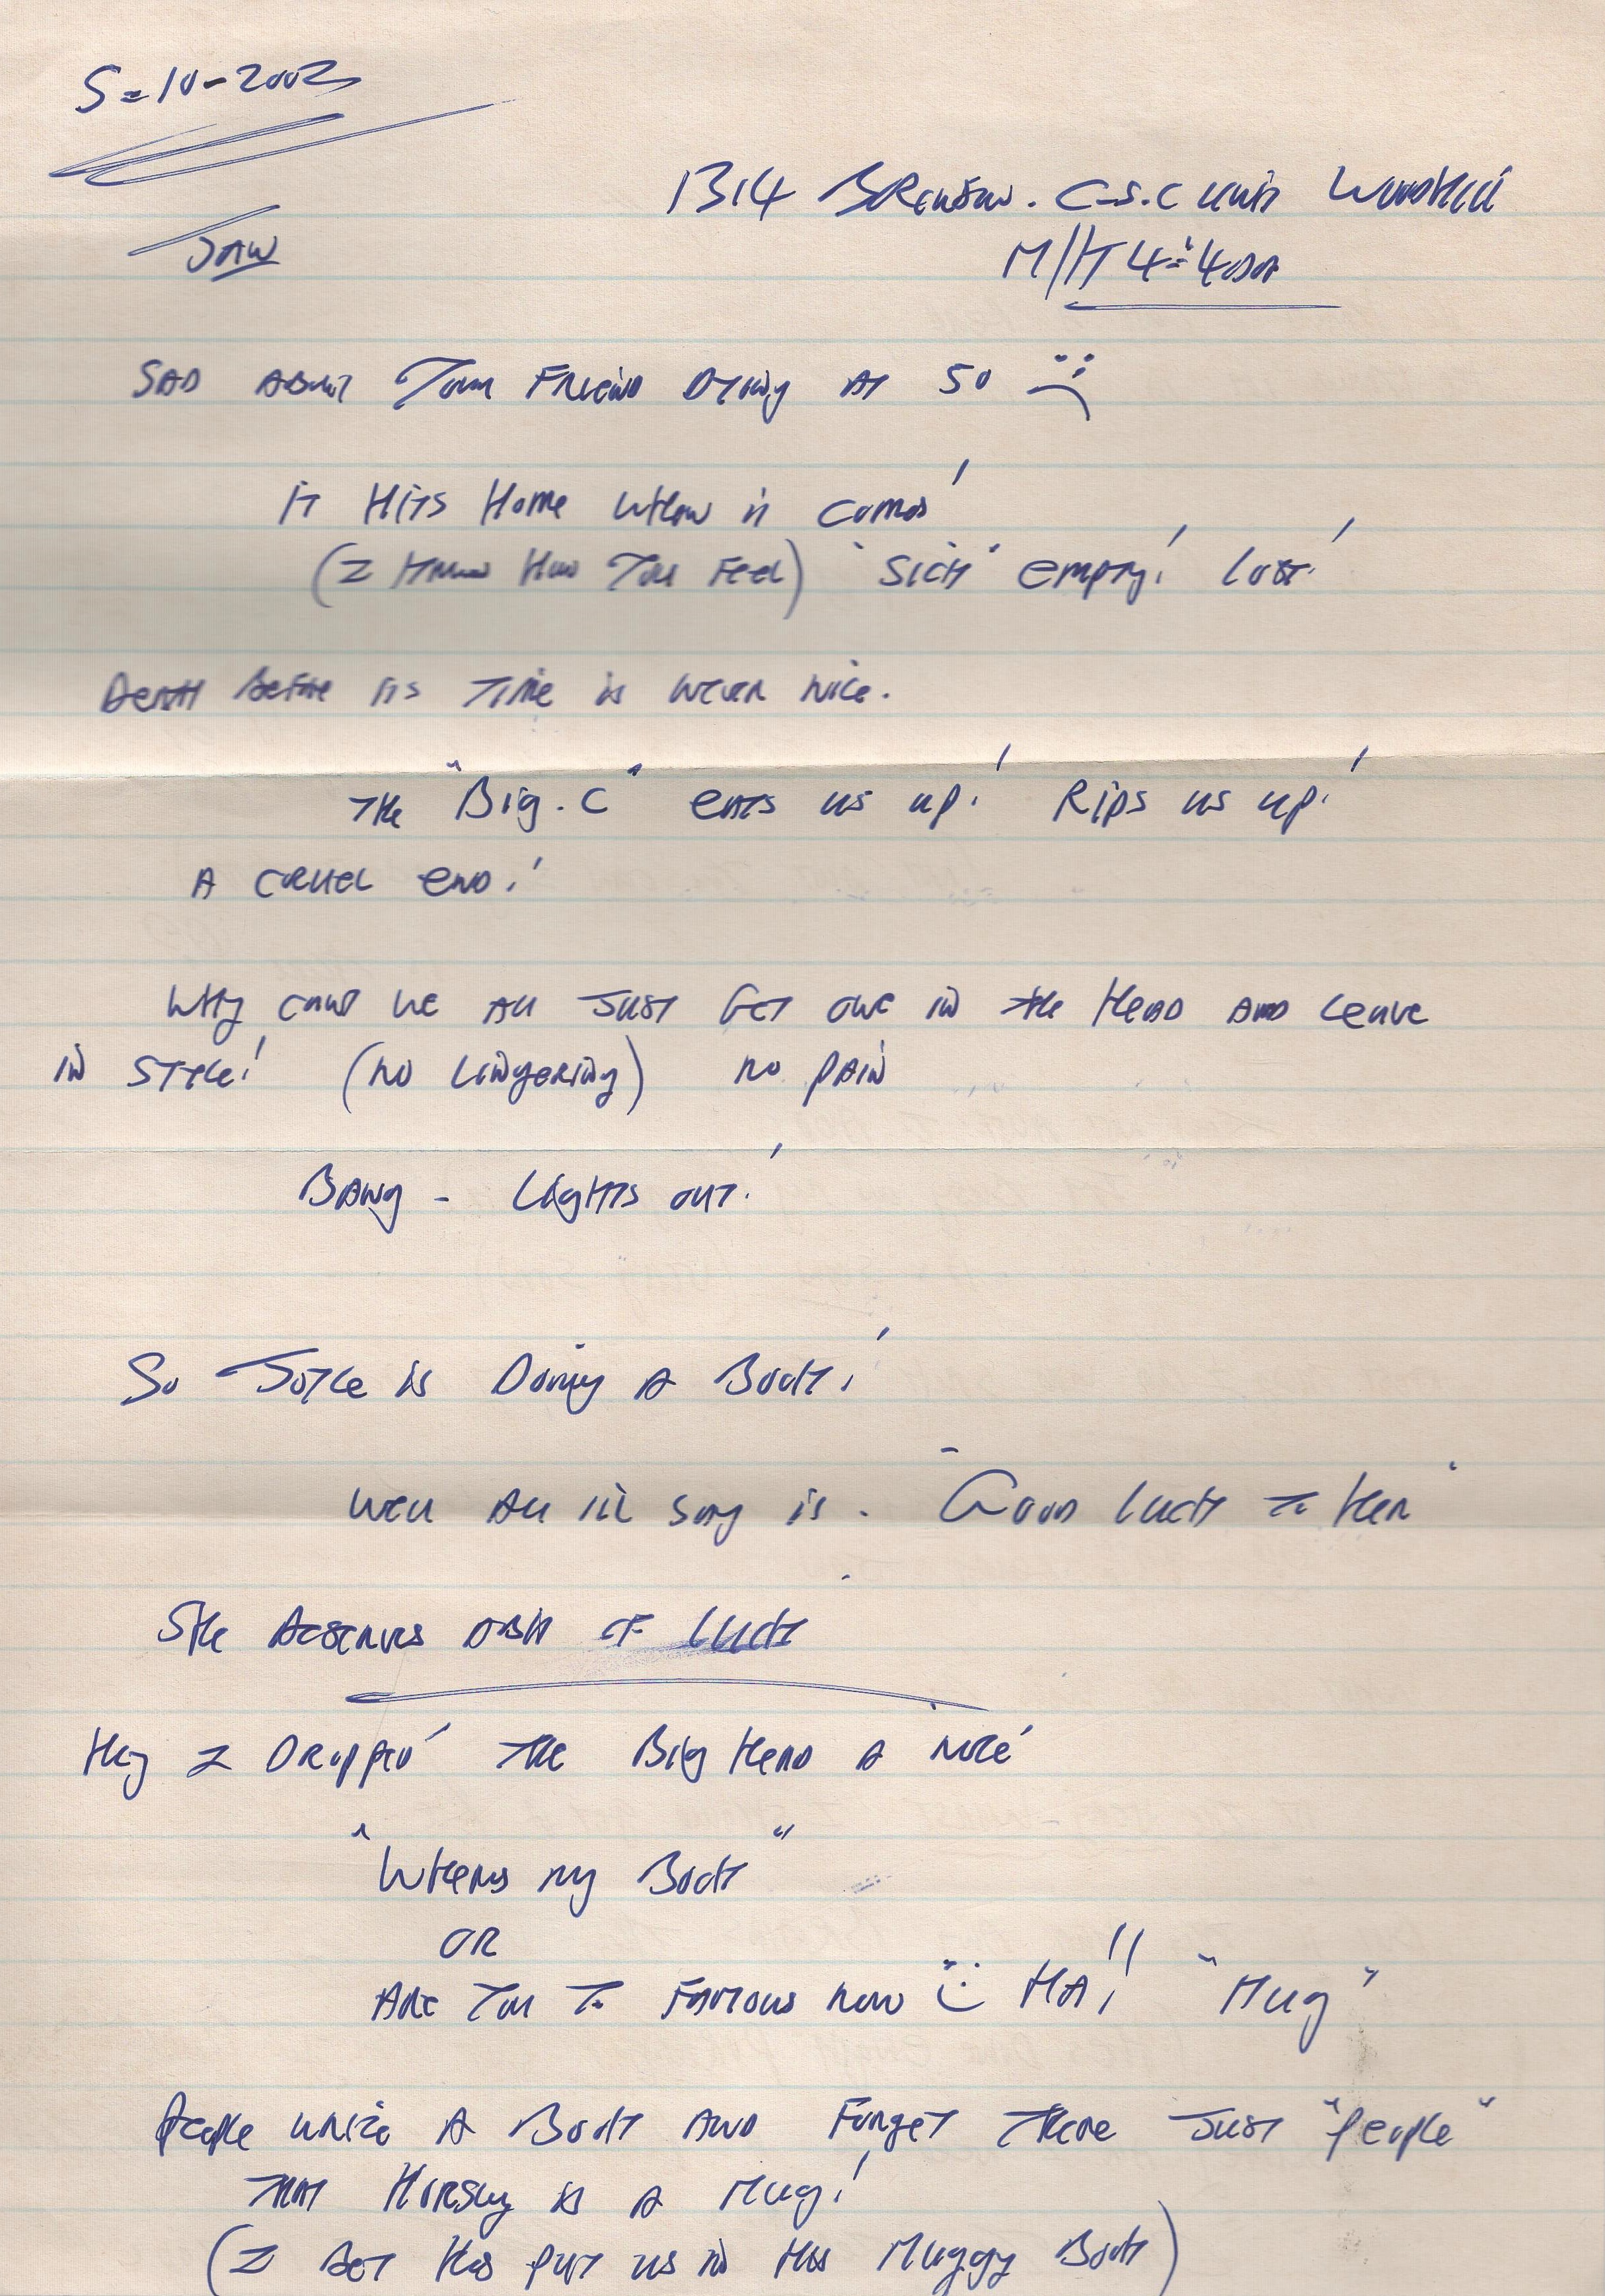 5-10-2002
1314 BRONSON. C.S.C UNIT WOODHILL
MK4-4DA
JAN
SAD ABOUT YOUR FRIEND DYING AT 50
IT HITS HOME WHEN IT COMES!
(I KNOW HOW YOU FEEL) "SICK" EMPTY! LOST!
DEATH BEFORE ITS TIME IS NEVER NICE.
THE "BIG.C" EATS US UP! RIPS US UP!
A CRUEL END!
WHY CANT WE ALL JUST GET ONE IN THE HEAD AND LEAVE
IN STYLE! (NO LINGERING) NO PAIN
BANG - LIGHTS OUT!
SO JOYCE IS DOING A BOOK!
WELL ALL ILL SAY IS. "GOOD LUCK TO HER"
SHE DESERVES A BIT OF LUCK
HEY I DROPPED THE BIG HEAD A NOTE
"WHERES MY BOOK"
OR
ARE YOU TO FAMOUS NOW HA!! "MUG"
PEOPLE WRITE A BOOK AND FORGET THERE JUST "PEOPLE"
THAT HORSLEY IS A MUG!
(I BET HES PUT US IN HIS MUGGY BOOK)